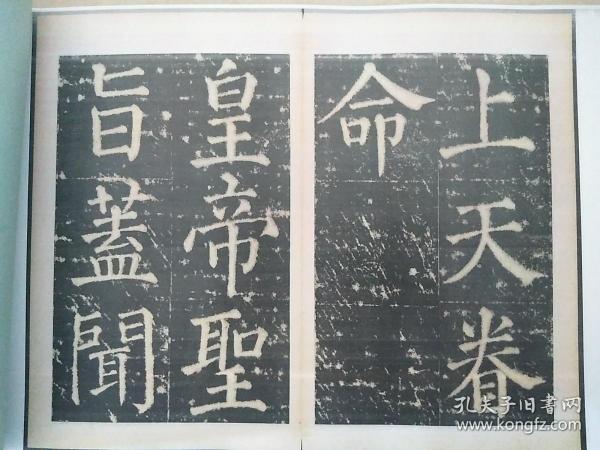 上天眷
命
皇帝聖
旨蓋聞
孔夫子旧书网
www.kongfz.com